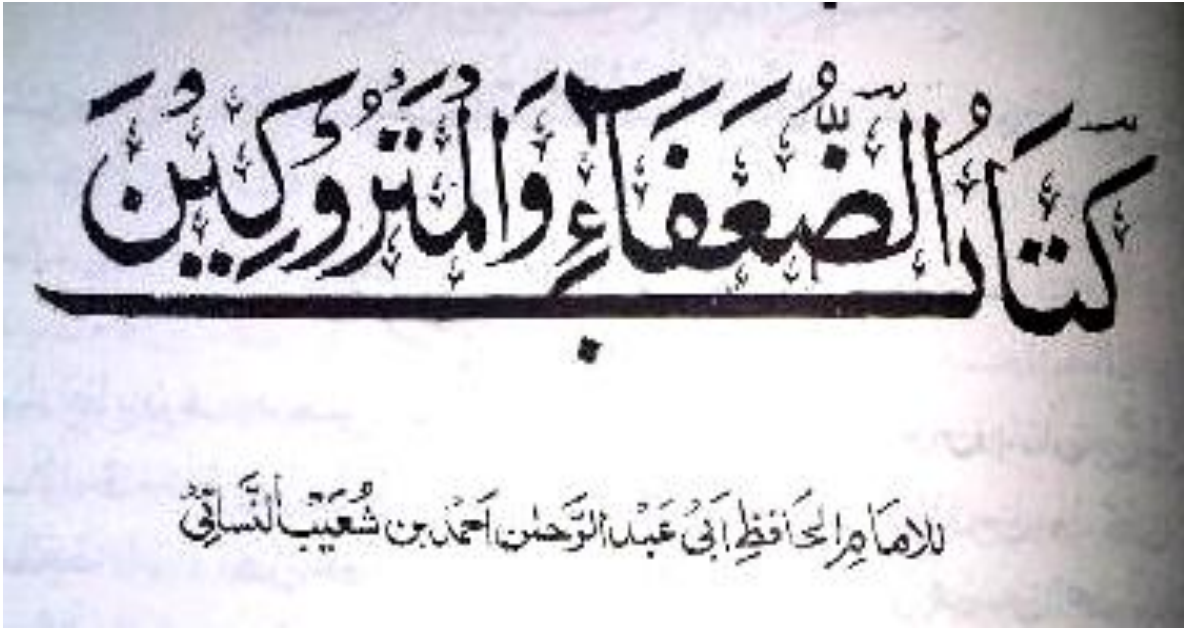 كِتَابُ الضُّعَفَآءِ وَالْمَتْرُوْكِيْنَ
للامَامِ الحَافِظِ اَبِىْ عَبْدالرَّحمٰن اَحمَدْ بن شُعَيْب النَّسائِىْ